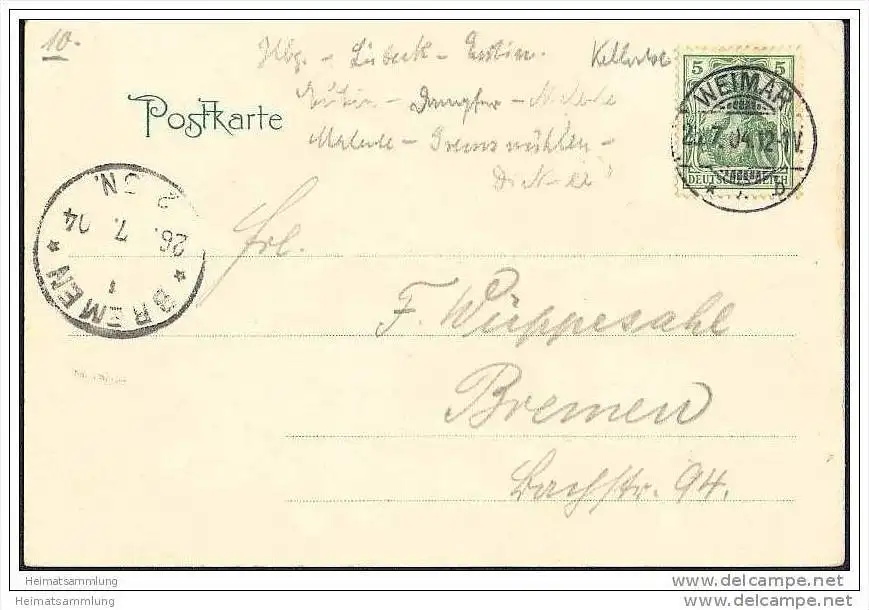 10.
Hbg. - Lübeck - Eutin.
Eutin - Dampfer - Malente
Malente - Gremsmühlen -
Postkarte
5 5
DEUTSCHES REICH
WEIMAR
7. 04. 12-1V.
BREMEN
26. 7. 04
1
Frl.
F. Wüppesahl
Bremen
Bachstr. 94.
Heimatsammlung
Heimatsammlung
www.delcampe.net
www.delcampe.net